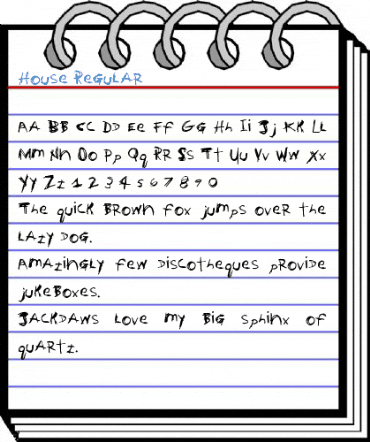 House Regular
AA BB CC DD Ee Ff GG Hh Ii Jj KK LL
Mm Nn Oo Pp Qq RR Ss Tt Uu Vv Ww Xx
Yy Zz 1 2 3 4 5 6 7 8 9 0
The quick brown fox jumps over the
lazy dog.
Amazingly few discotheques provide
jukeboxes.
Jackdaws love my big sphinx of
quartz.